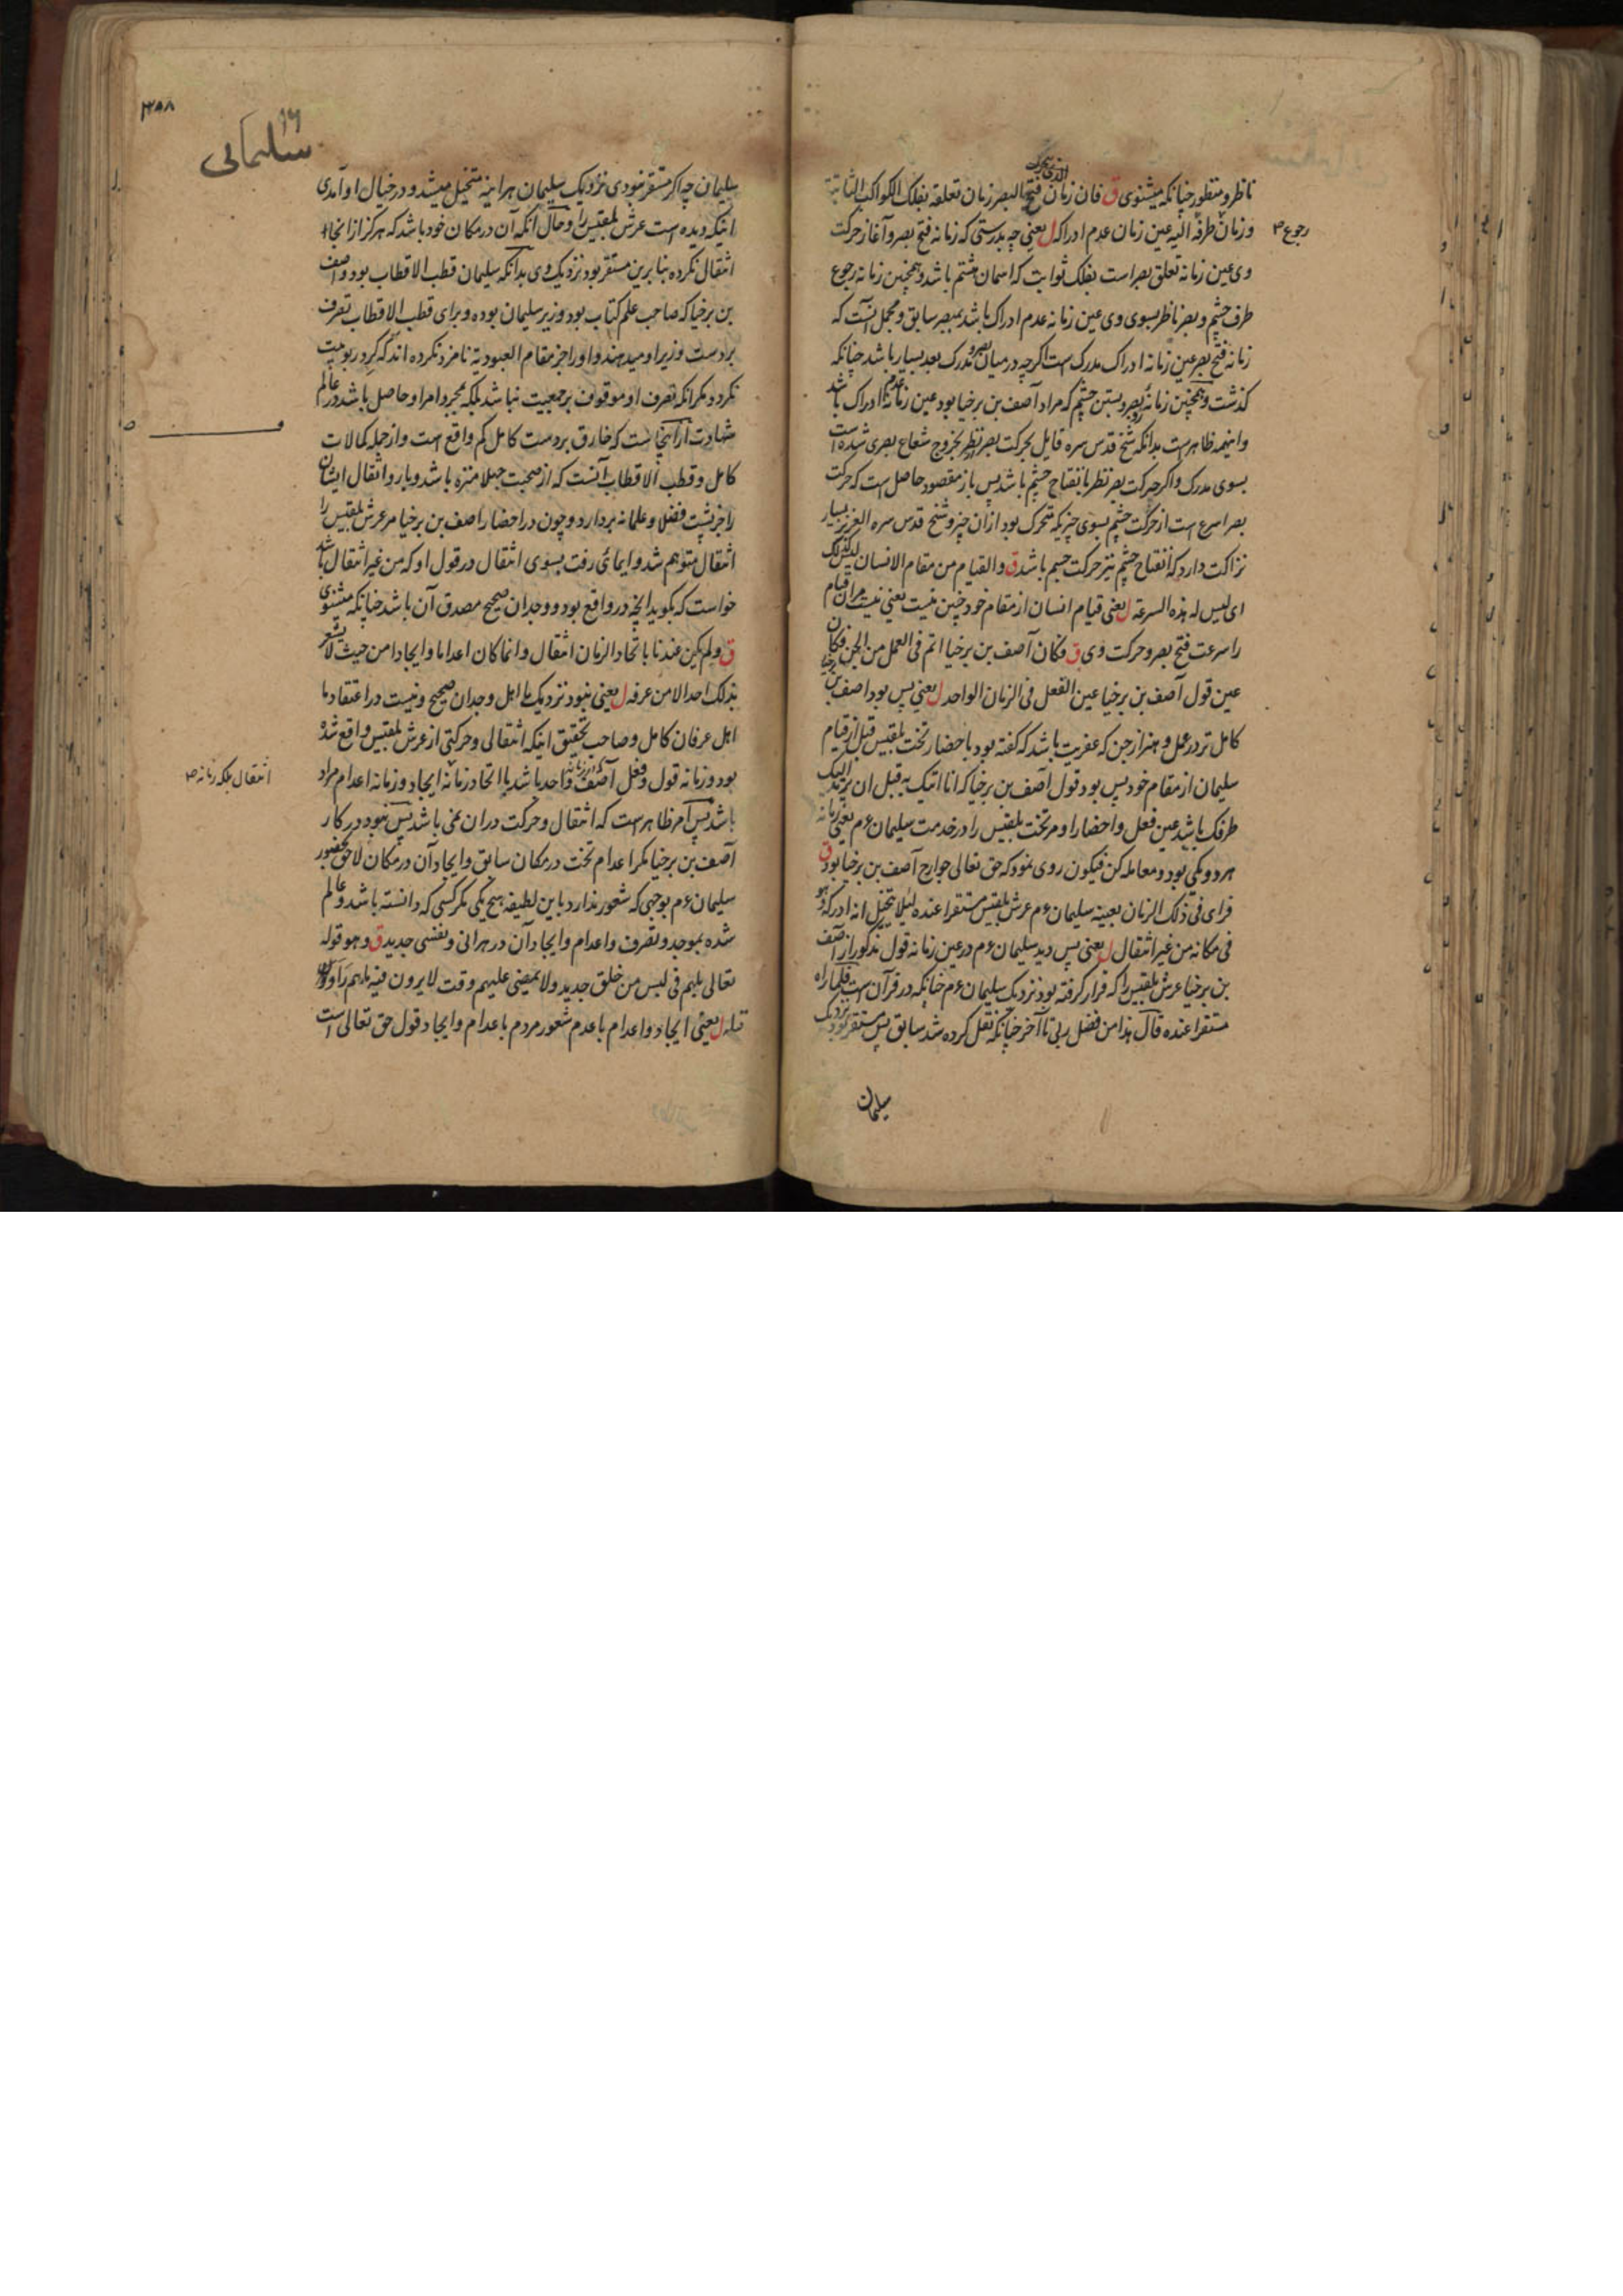 ناظر و منظور چنانکه میشنوی ق فان زمان فتح البصر زمان تعلقه بفلک الکواکب الثابتة
و زمان طرفه الیه عین زمان عدم ادراکه ل یعنی چه بدرستی که زمانه فتح بصر و آغاز حرکت
رجوع
وی عین زمانه تعلق بصر است بفلک ثوابت که اسمان هشتم باشد و همچنین زمانه رجوع
طرف چشم و بصر ناظر بسوی وی عین زمانه عدم ادراک باشد بمبصر سابق و مجمل آنست که
زمانه فتح بصر عین زمانه ادراک مدرک است اگرچه در میان بصر و مدرک بعد بسیار باشد چنانکه
گذشت و همچنین زمانه بصر و بستن چشم که مراد آصف بن برخیا بود عین زمانه عدم ادراک باشد
و اینهمه ظاهر است بدانکه شیخ قدس سره قایل بحرکت بصر نظر بخروج شعاع بصری شده است
بسوی مدرک و اگر حرکت بصر نظر بانفتاح چشم باشد پس باز مقصود حاصل است که حرکت
بصر اسرع است از حرکت چشم بسوی چیزیکه متحرک بود ازان چیز و شیخ قدس سره العزیز بسیار
نزاکت دارد که انفتاح چشم نیز حرکت جسم باشد ق والقیام من مقام الانسان لیس کذلک
ای لیس له هذه السرعة ل یعنی قیام انسان از مقام خود چنین نیست یعنی نیست مران قیام
را سرعت فتح بصر و حرکت وی ق فکان آصف بن برخیا اتم فی العمل من الجن فکان
عین قول آصف بن برخیا عین الفعل فی الزمان الواحد ل یعنی پس بود اصف بن برخیا
کامل تر در عمل و هنر از جن که عفریت باشد که گفته بود باحضار تخت بلقیس قبل از قیام
سلیمان از مقام خود پس بود قول آصف بن برخیا که انا اتیک به قبل ان یرتد الیک
طرفک باشد عین فعل و احضار او مر تخت بلقیس را در خدمت سلیمان عم یعنی زمانه
هر دو یکی بود و معامله کن فیکون روی نمود که حق تعالی جوارح آصف بن برخیا بود ق
فرای فی ذلک الزمان بعینه سلیمان عم عرش بلقیس مستقرا عنده لئلا یتخیل انه ادرکه و هو
فی مکانه من غیر انتقال ل یعنی پس دید سلیمان عم در عین زمانه قول مذکور از آصف
بن برخیا عرش بلقیس را که قرار گرفته بود نزدیک سلیمان عم چنانکه در قرآن است فلما راه
مستقرا عنده قال هذا من فضل ربی تا آخر چنانکه نقل کرده شد سابق پس مستقر بود نزدیک
سلیمان
سلیمانی
سلیمان چه اگر مستقر نبودی نزدیک سلیمان هر اینه متخیل میشد و در خیال او آمدی
اینکه دیده است عرش بلقیس را و حال آنکه آن در مکان خود باشد که هرگز از انجا
انتقال نکرده بنابرین مستقر بود نزدیک وی بدانکه سلیمان قطب الاقطاب بود و اصف
بن برخیا که صاحب علم کتاب بود وزیر سلیمان بوده و برای قطب الاقطاب تصرف
بر دست وزیر او میدهند و او را جز مقام العبودیة نامزد نکرده اند که گرد ربوبیت
نگردد مگر انکه تصرف او موقوف بر جمعیت نباشد بلکه بمجرد امر او حاصل باشد در عالم
شهادت از اینجاست که خارق بر دست کامل کم واقع است و از جمله کمالات
کامل و قطب الاقطاب آنست که از صحبت جهلا منزه باشد و بار و اثقال ایشان
را جز پشت فضلا و علما نه بردارد و چون در احضار اصف بن برخیا مر عرش بلقیس را
انتقال متوهم شد و ایمائی رفت بسوی انتقال در قول او که من غیر انتقال باشد
خواست که بگوید انچه در واقع بود و وجدان صحیح مصدق آن باشد چنانکه میشنوی
ق و لم یکن عندنا باتحاد الزمان انتقال و انما کان اعداما و ایجادا من حیث لا یشعر
بذلک احد الا من عرفه ل یعنی نبود نزدیک ما اهل وجدان صحیح و نیست در اعتقاد ما
اهل عرفان کامل و صاحب تحقیق اینکه انتقالی و حرکتی از عرش بلقیس واقع شد
بود و زمانه قول و فعل آصف واحد باشد با اتحاد زمانه ایجاد و زمانه اعدام مراد
انتقال بلکه زمانه
باشد پس امر ظاهر است که انتقال و حرکت در ان نمی باشد پس نبود در کار
آصف بن برخیا مگر اعدام تخت در مکان سابق و ایجاد آن در مکان لاحق بحضور
سلیمان عم بوجهی که شعور ندارد باین لطیفه هیچ یکی مگر کسی که دانسته باشد و عالم
شده بموجد و تصرف و اعدام و ایجاد آن در هر آنی و نفسی جدید ق و هو قوله
تعالی بل هم فی لبس من خلق جدید و لا یمضی علیهم وقت لا یرون فیه ما هم راؤن
له ل یعنی ایجاد و اعدام با عدم شعور مردم باعدام و ایجاد قول حق تعالی است